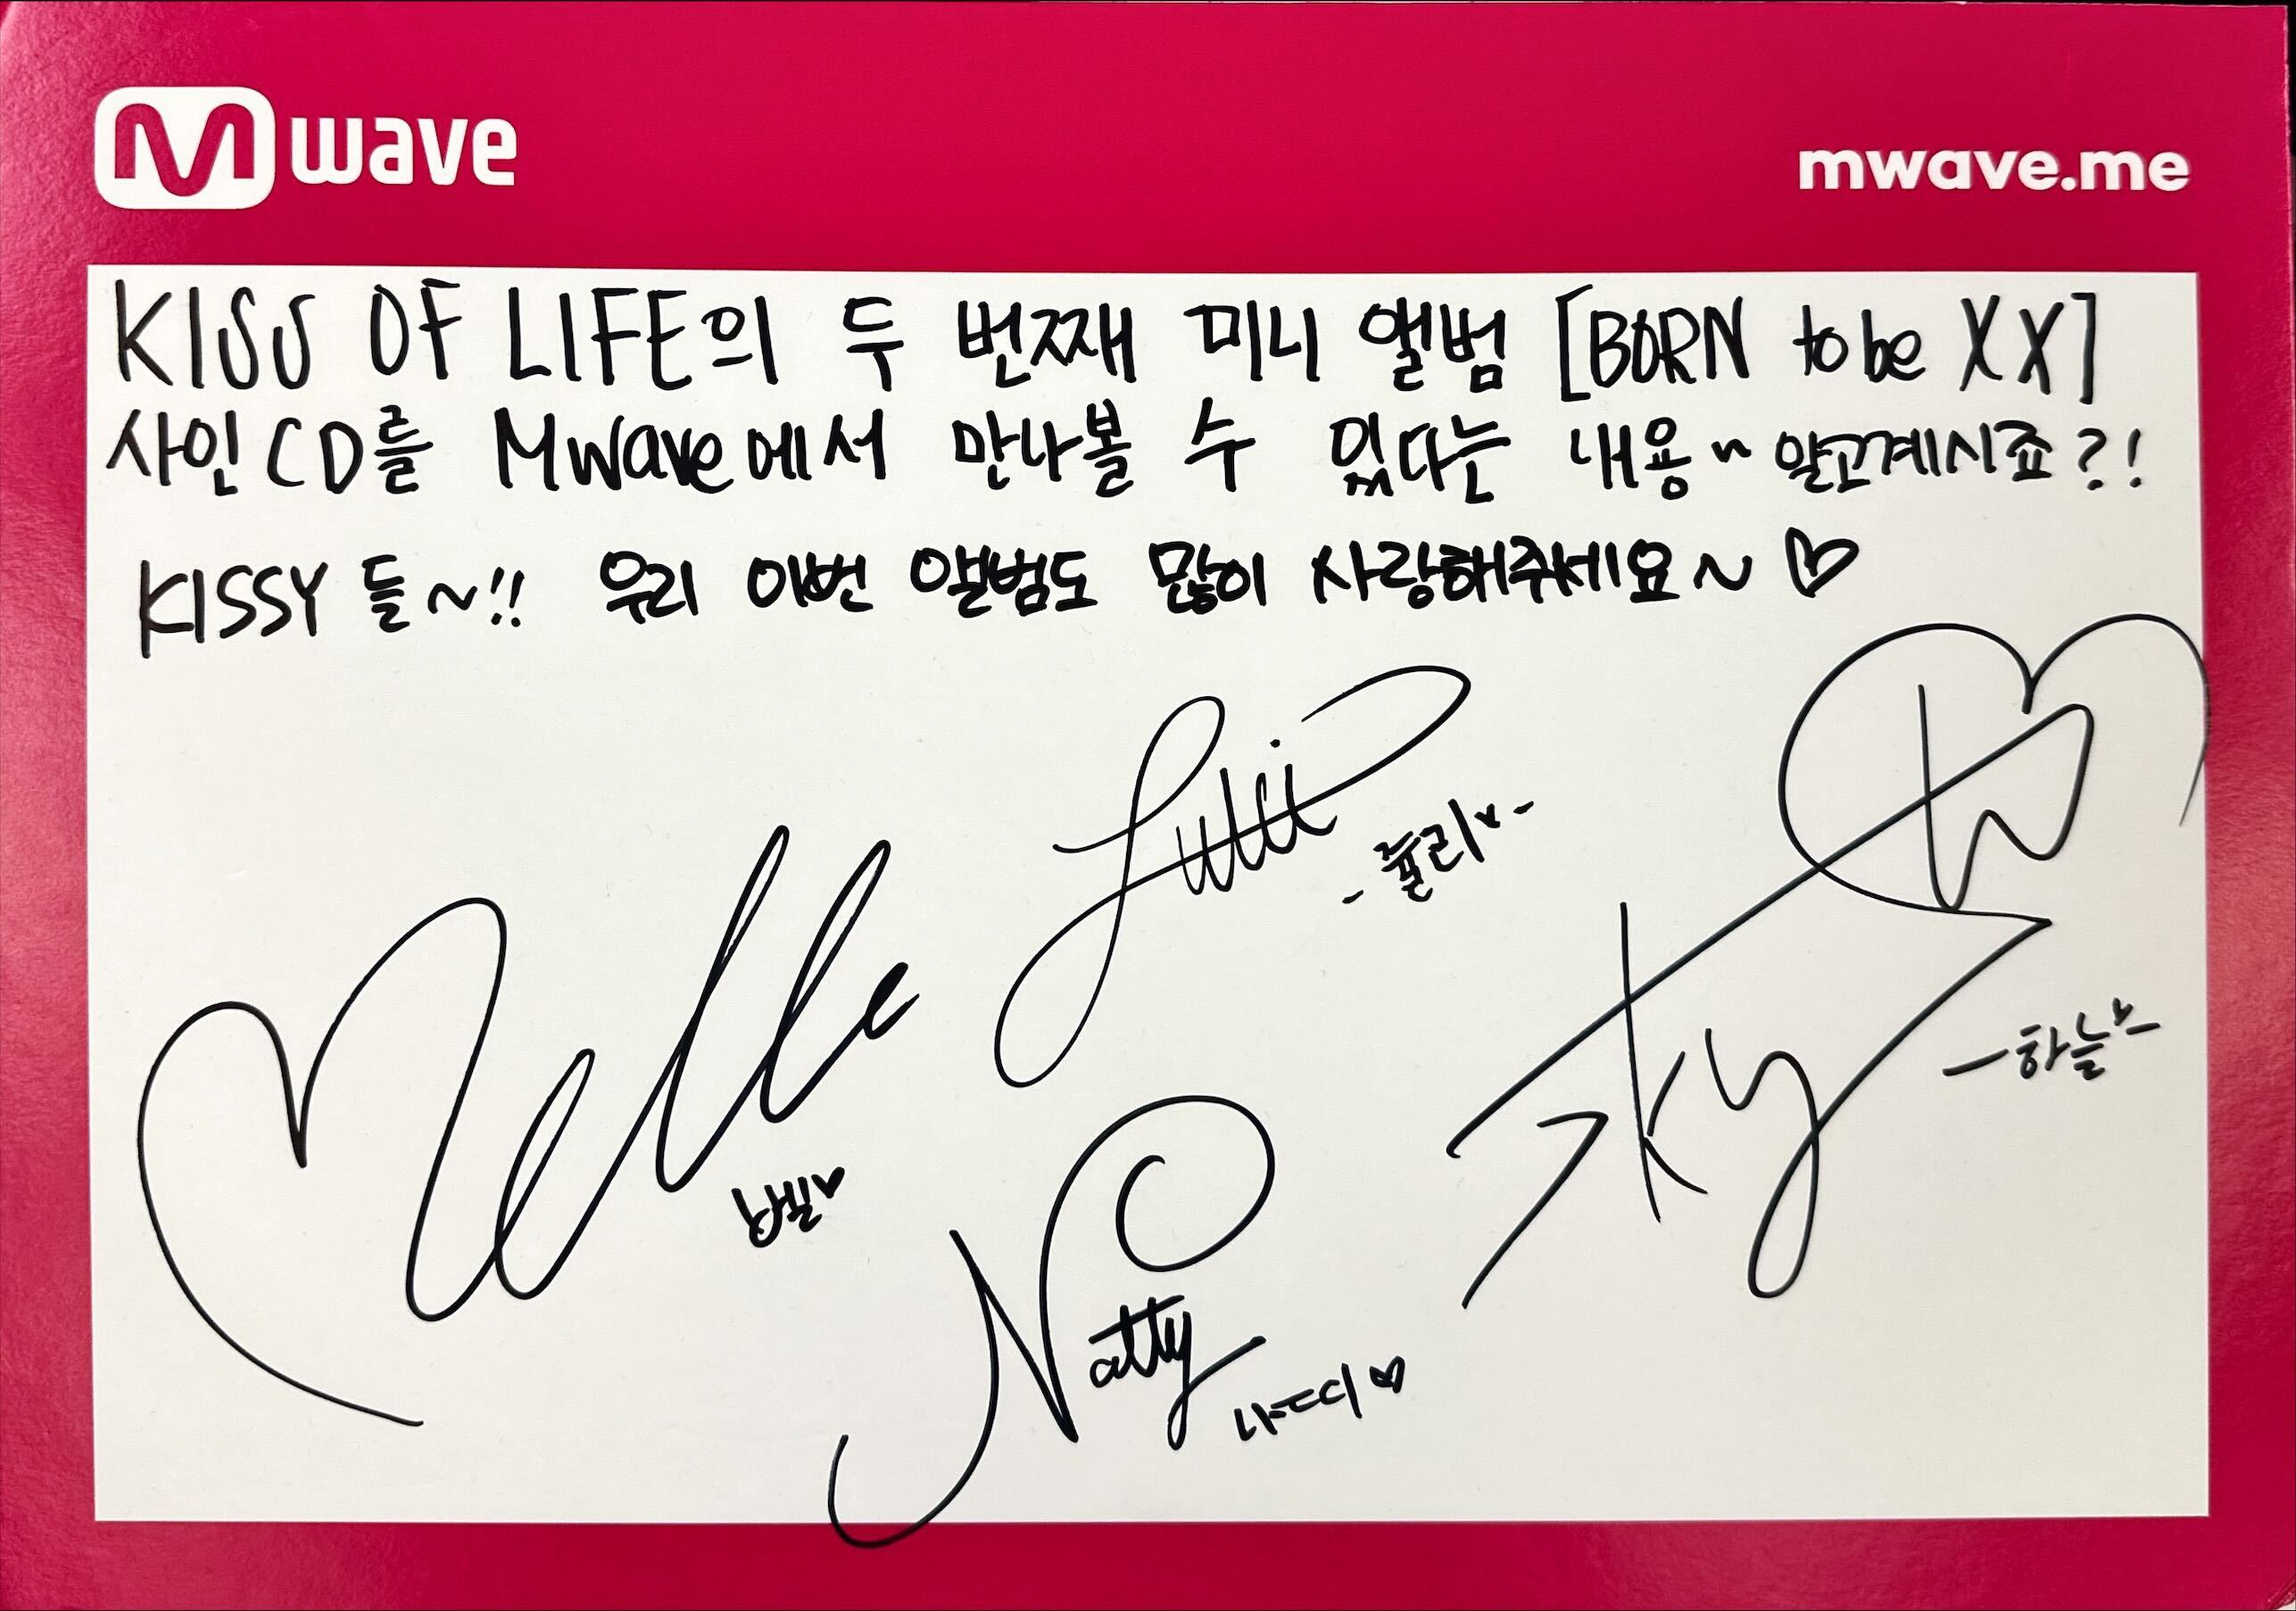 Mwave
mwave.me
KISS OF LIFE의 두 번째 미니 앨범 [BORN to be XX]
사인CD를 Mwave에서 만나볼 수 있다는 내용~ 알고계시죠?!
KISSY들~!! 우리 이번 앨범도 많이 사랑해주세요~ ♡
-쥴리♥-
-하늘♥-
Belle
벨♥
Sky
Natty
나띠♥